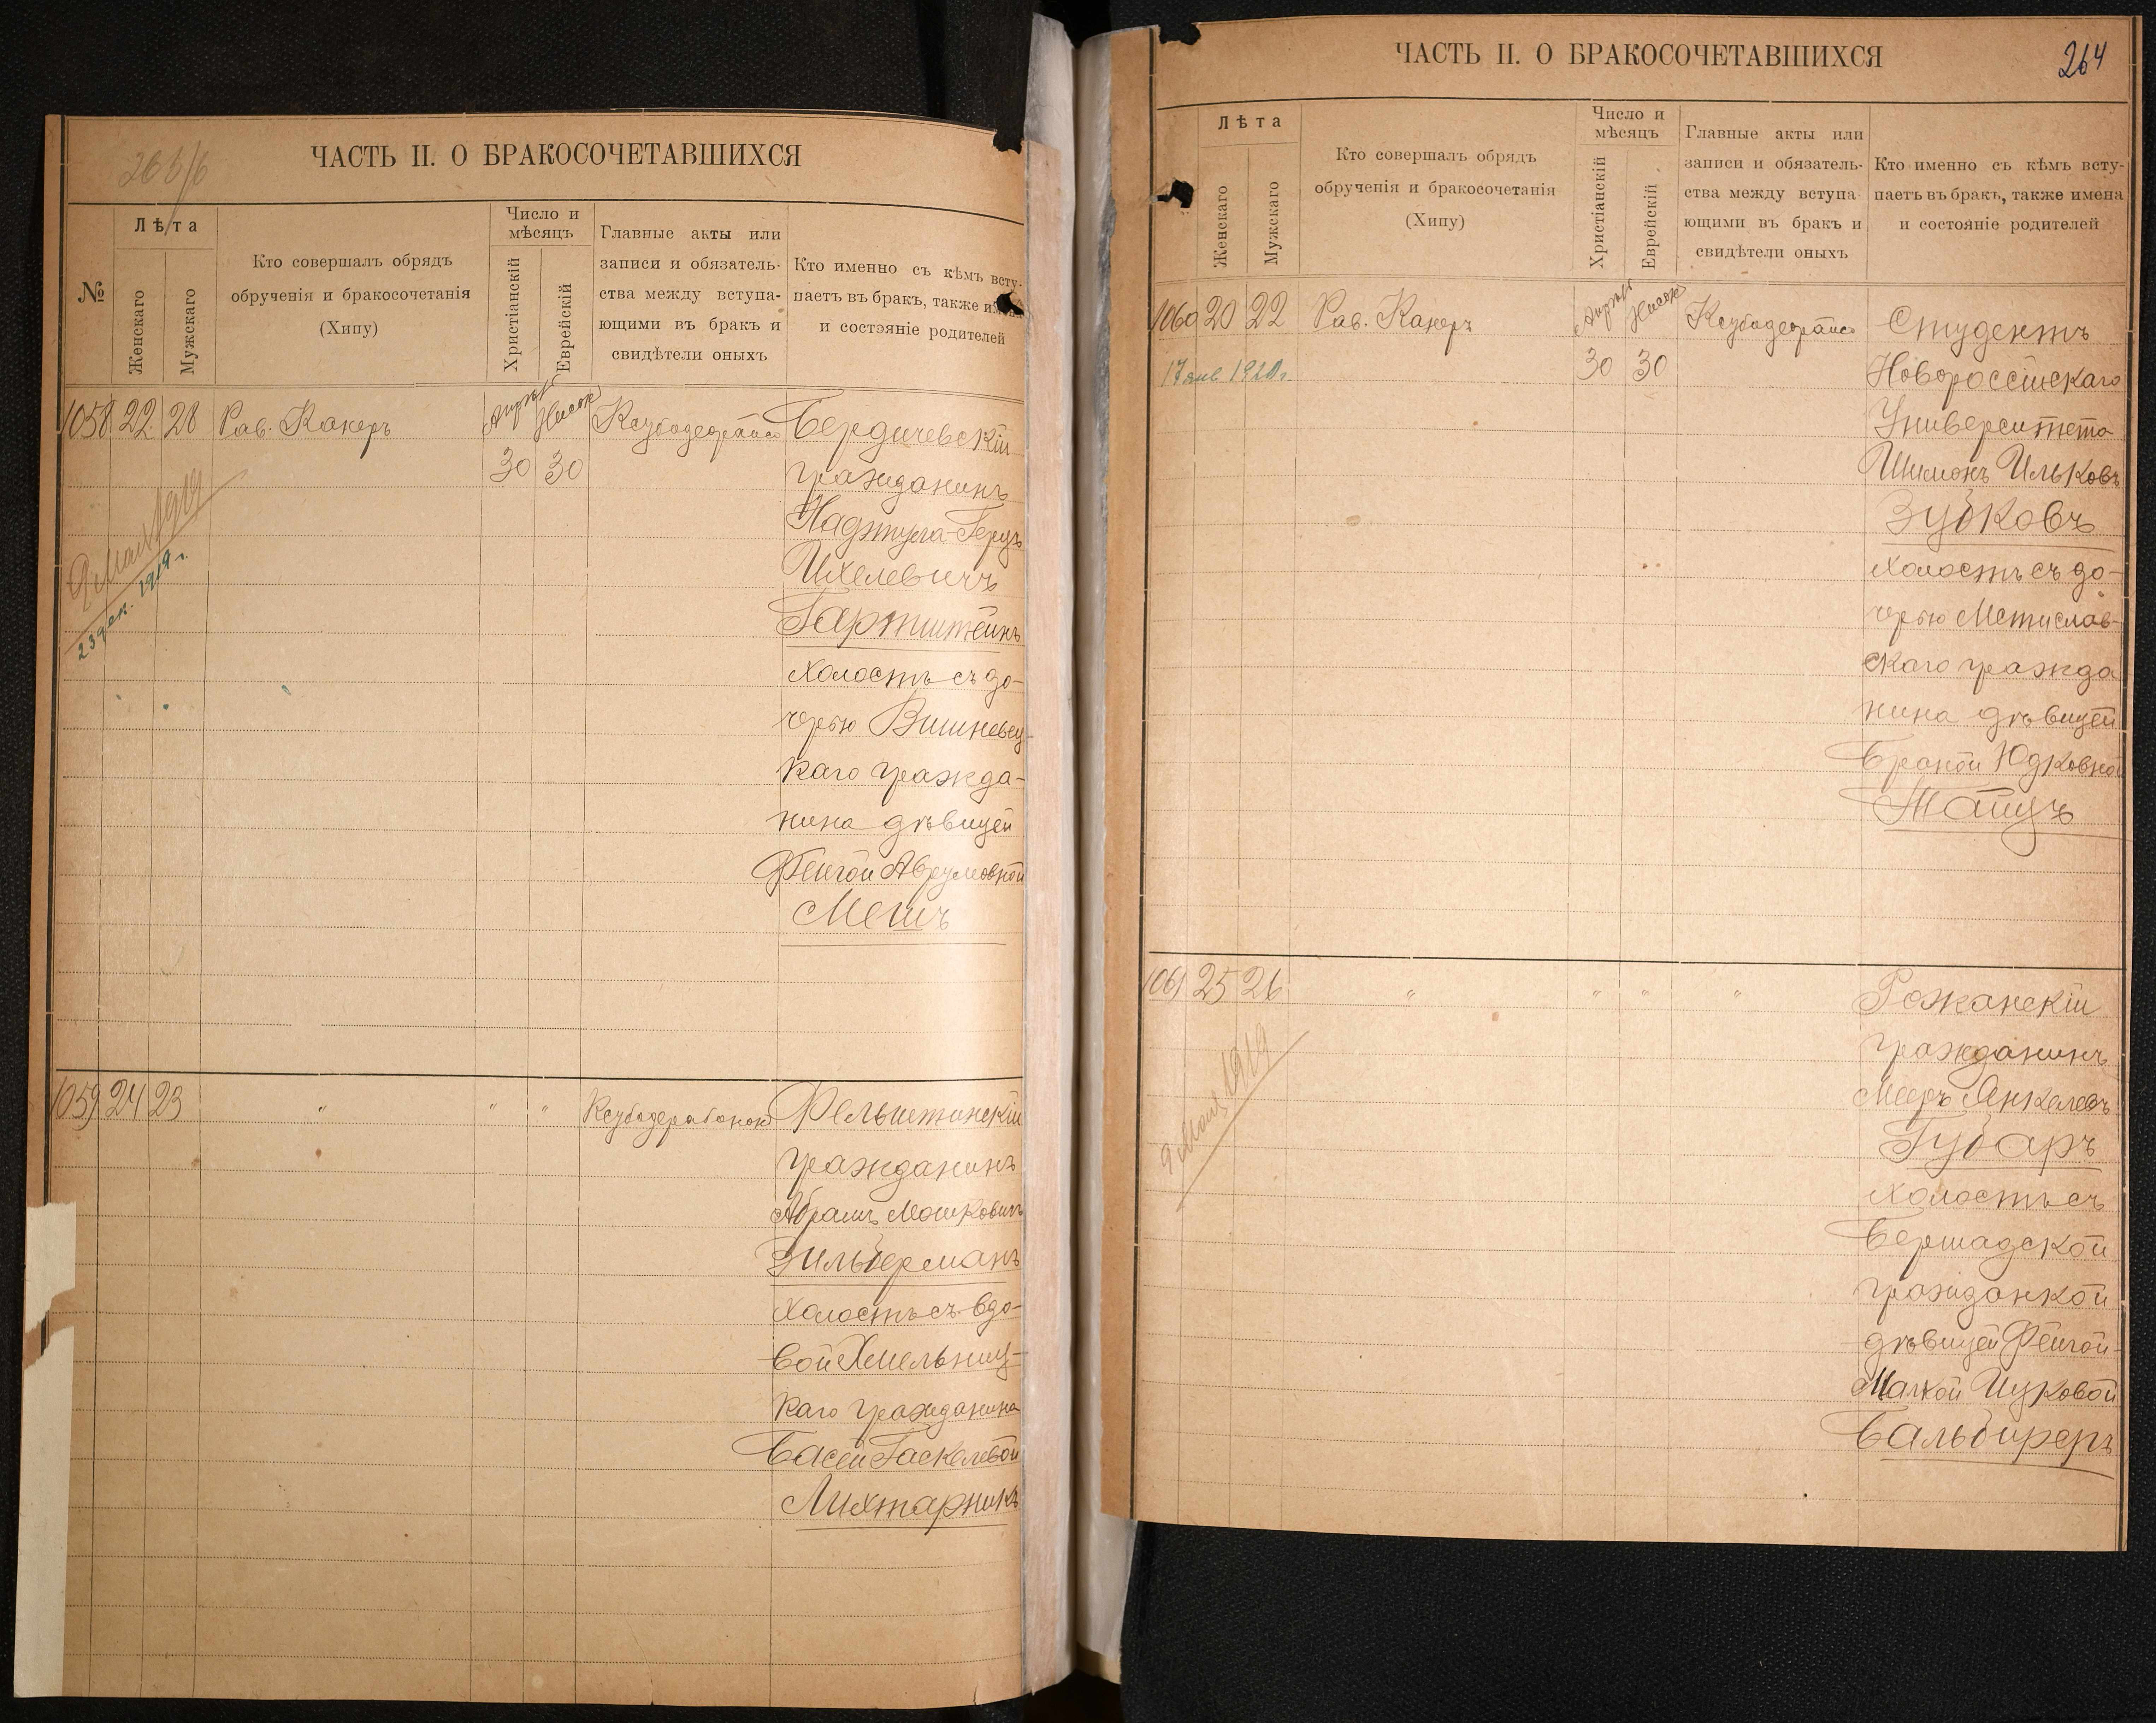 ЧАСТЬ II. О БРАКОСОЧЕТАВШИХСЯ
№
Лѣта
Женскаго
Мужскаго
Кто совершалъ обрядъ
обрученія и бракосочетанія
(Хипу)
Число и
мѣсяцъ
Христіанскій
Еврейскій
Главные акты или
записи и обязатель-
ства между вступа-
ющими въ бракъ и
свидѣтели оныхъ
Кто именно съ кѣмъ всту-
паетъ въ бракъ, также имена
и состояніе родителей
1058 22 28 Рав. Канеръ
30 30
9 Мая 1919
23 дек. 1919 г.
Бердичевскій
гражданинъ
Ихелевичъ
Гартштейнъ
холостъ съ до-
черью Вишневец-
каго гражда-
нина дѣвицей
Фейгой Аврумовной
Мешъ
1059 24 23 " " "
Фельштинскій
гражданинъ
Абрамъ Мошковичъ
Зильберманъ
холостъ съ вдо-
вой Хмельниц-
каго гражданина
Басей Гаскелевой
Лихтарникъ
ЧАСТЬ II. О БРАКОСОЧЕТАВШИХСЯ
264
Лѣта
Женскаго
Мужскаго
Кто совершалъ обрядъ
обрученія и бракосочетанія
(Хипу)
Число и
мѣсяцъ
Христіанскій
Еврейскій
Главные акты или
записи и обязатель-
ства между вступа-
ющими въ бракъ и
свидѣтели оныхъ
Кто именно съ кѣмъ всту-
паетъ въ бракъ, также имена
и состояніе родителей
1060 20 22 Рав. Канеръ
30 30
17 янв 1920 г.
Студентъ
Новороссійскаго
Университета
Шимонъ Ильковъ
Зубковъ
холостъ съ до-
черью Мстислав-
скаго гражда
нина дѣвицей
Браной Юдковной
Мацъ
1061 25 26 " " " "
9 Мая 1919
Рожанскій
гражданинъ
Мееръ Янкелевъ
Губаръ
холостъ съ
Бершадской
гражданкой
дѣвицей Фейгой-
Малкой Ицковой
Бальбиреръ